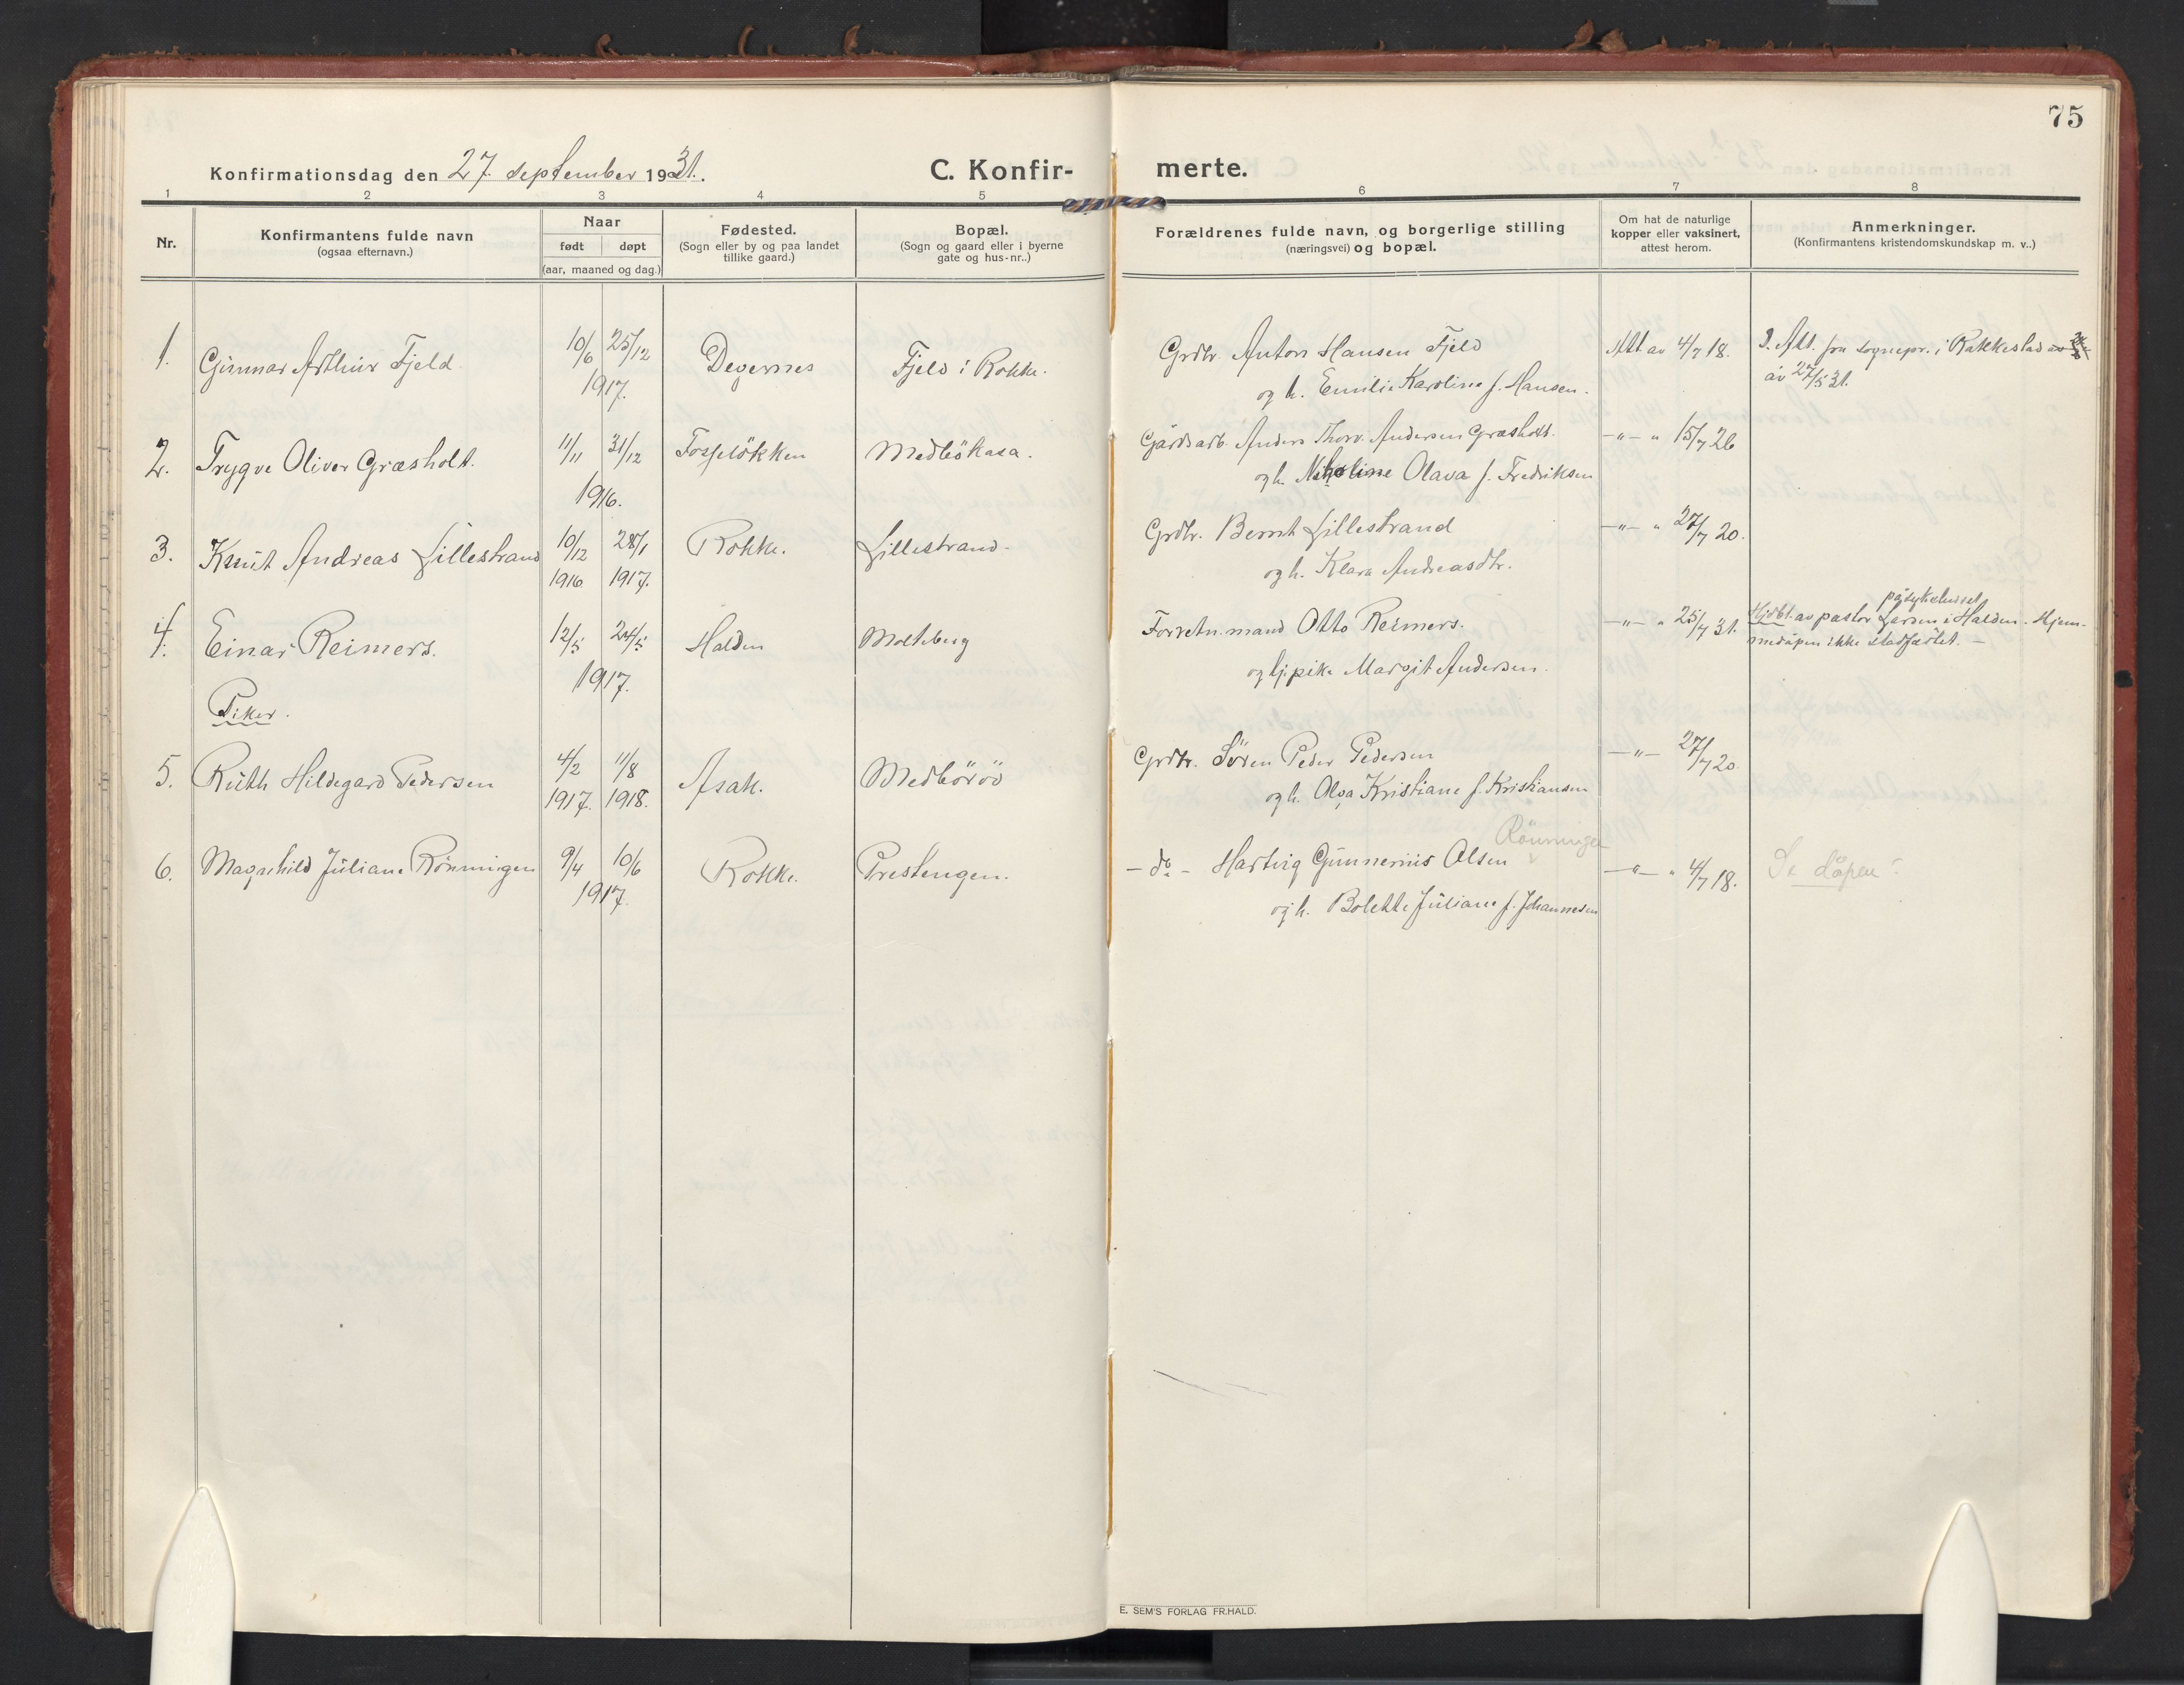 75
Konfirmationsdag den 27. september 1931.
C. Konfir-
merte.
1 2 3 4 5 6 7 8
Nr.
Konfirmantens fulde navn
(ogsaa efternavn.)
Naar
født døpt
(aar, maaned og dag.)
Fødested.
(Sogn eller by og paa landet
tillike gaard.)
Bopæl.
(Sogn og gaard eller i byerne
gate og hus-nr..)
Forældrenes fulde navn, og borgerlige stilling
(næringsvei) og bopæl.
Om hat de naturlige
kopper eller vaksinert,
attest herom.
Anmerkninger.
(Konfirmantens kristendomskundskap m. v..)
1. Gunnar Arthur Fjeld. 10/6 25/12 Degernes Fjeld i Rokke. Grdbr. Anton Hansen Fjeld Att av 4/7 18. D. Att. fra sognepr. i Rakkestad
1917. og h. Emilie Karoline f. Hansen. av 27/5 31.
2. Trygve Oliver Græsholt. 11/11 31/12 Fosseløkken Medbökasa. Gårdsarb. Anders Thorv. Andersen Græsholt. -"- " 15/7 26
1916. og h. Nikoline Olava f. Fredriksen
3. Knut Andreas Lillestrand 10/12 28/1 Rokke. Lillestrand. Grdbr. Bernt Lillestrand -"- " 27/7 20.
1916 1917. og h. Klara Andreasdtr.
på sykehuset
4. Einar Reimers. 12/5 24/5 Halden Molteberg Forretn.mand Otto Reimers. -"- " 25/7 31. Hjdbt. av pastor Larsen i Halden. Hjem-
1917. og pike Margit Andersen. medåpen ikke stadfæstet. -
Piker.
5. Ruth Hildegard Pedersen 4/2 11/8 Asak. Medbørød Grdbr. Søren Peder Pedersen -"- 27/7 20
1917. 1918. og h. Olga Kristiane f. Kristiansen
Rönningen
6. Magnhild Juliane Rønningen 9/4 10/6 Rokke. Prestengen. - do - Hartvig Gunnerius Olsen -"- " 4/7 18. Se dåpen!
1917. og h. Bolette Juliane f. Johannesen
E. SEM'S FORLAG FR.HALD.